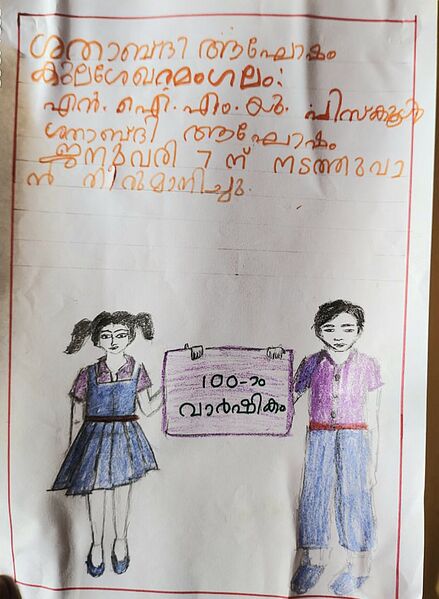 ശതാബ്ദി ആഘോഷം
കുലശേഖരമംഗലം:
എൻ. ഐ. എം. യു. പി സ്കൂൾ
ശതാബ്ദി ആഘോഷം
ജനുവരി 7 ന് നടത്തുവാ
ൻ തീരുമാനിച്ചു.
100-ാം
വാർഷികം